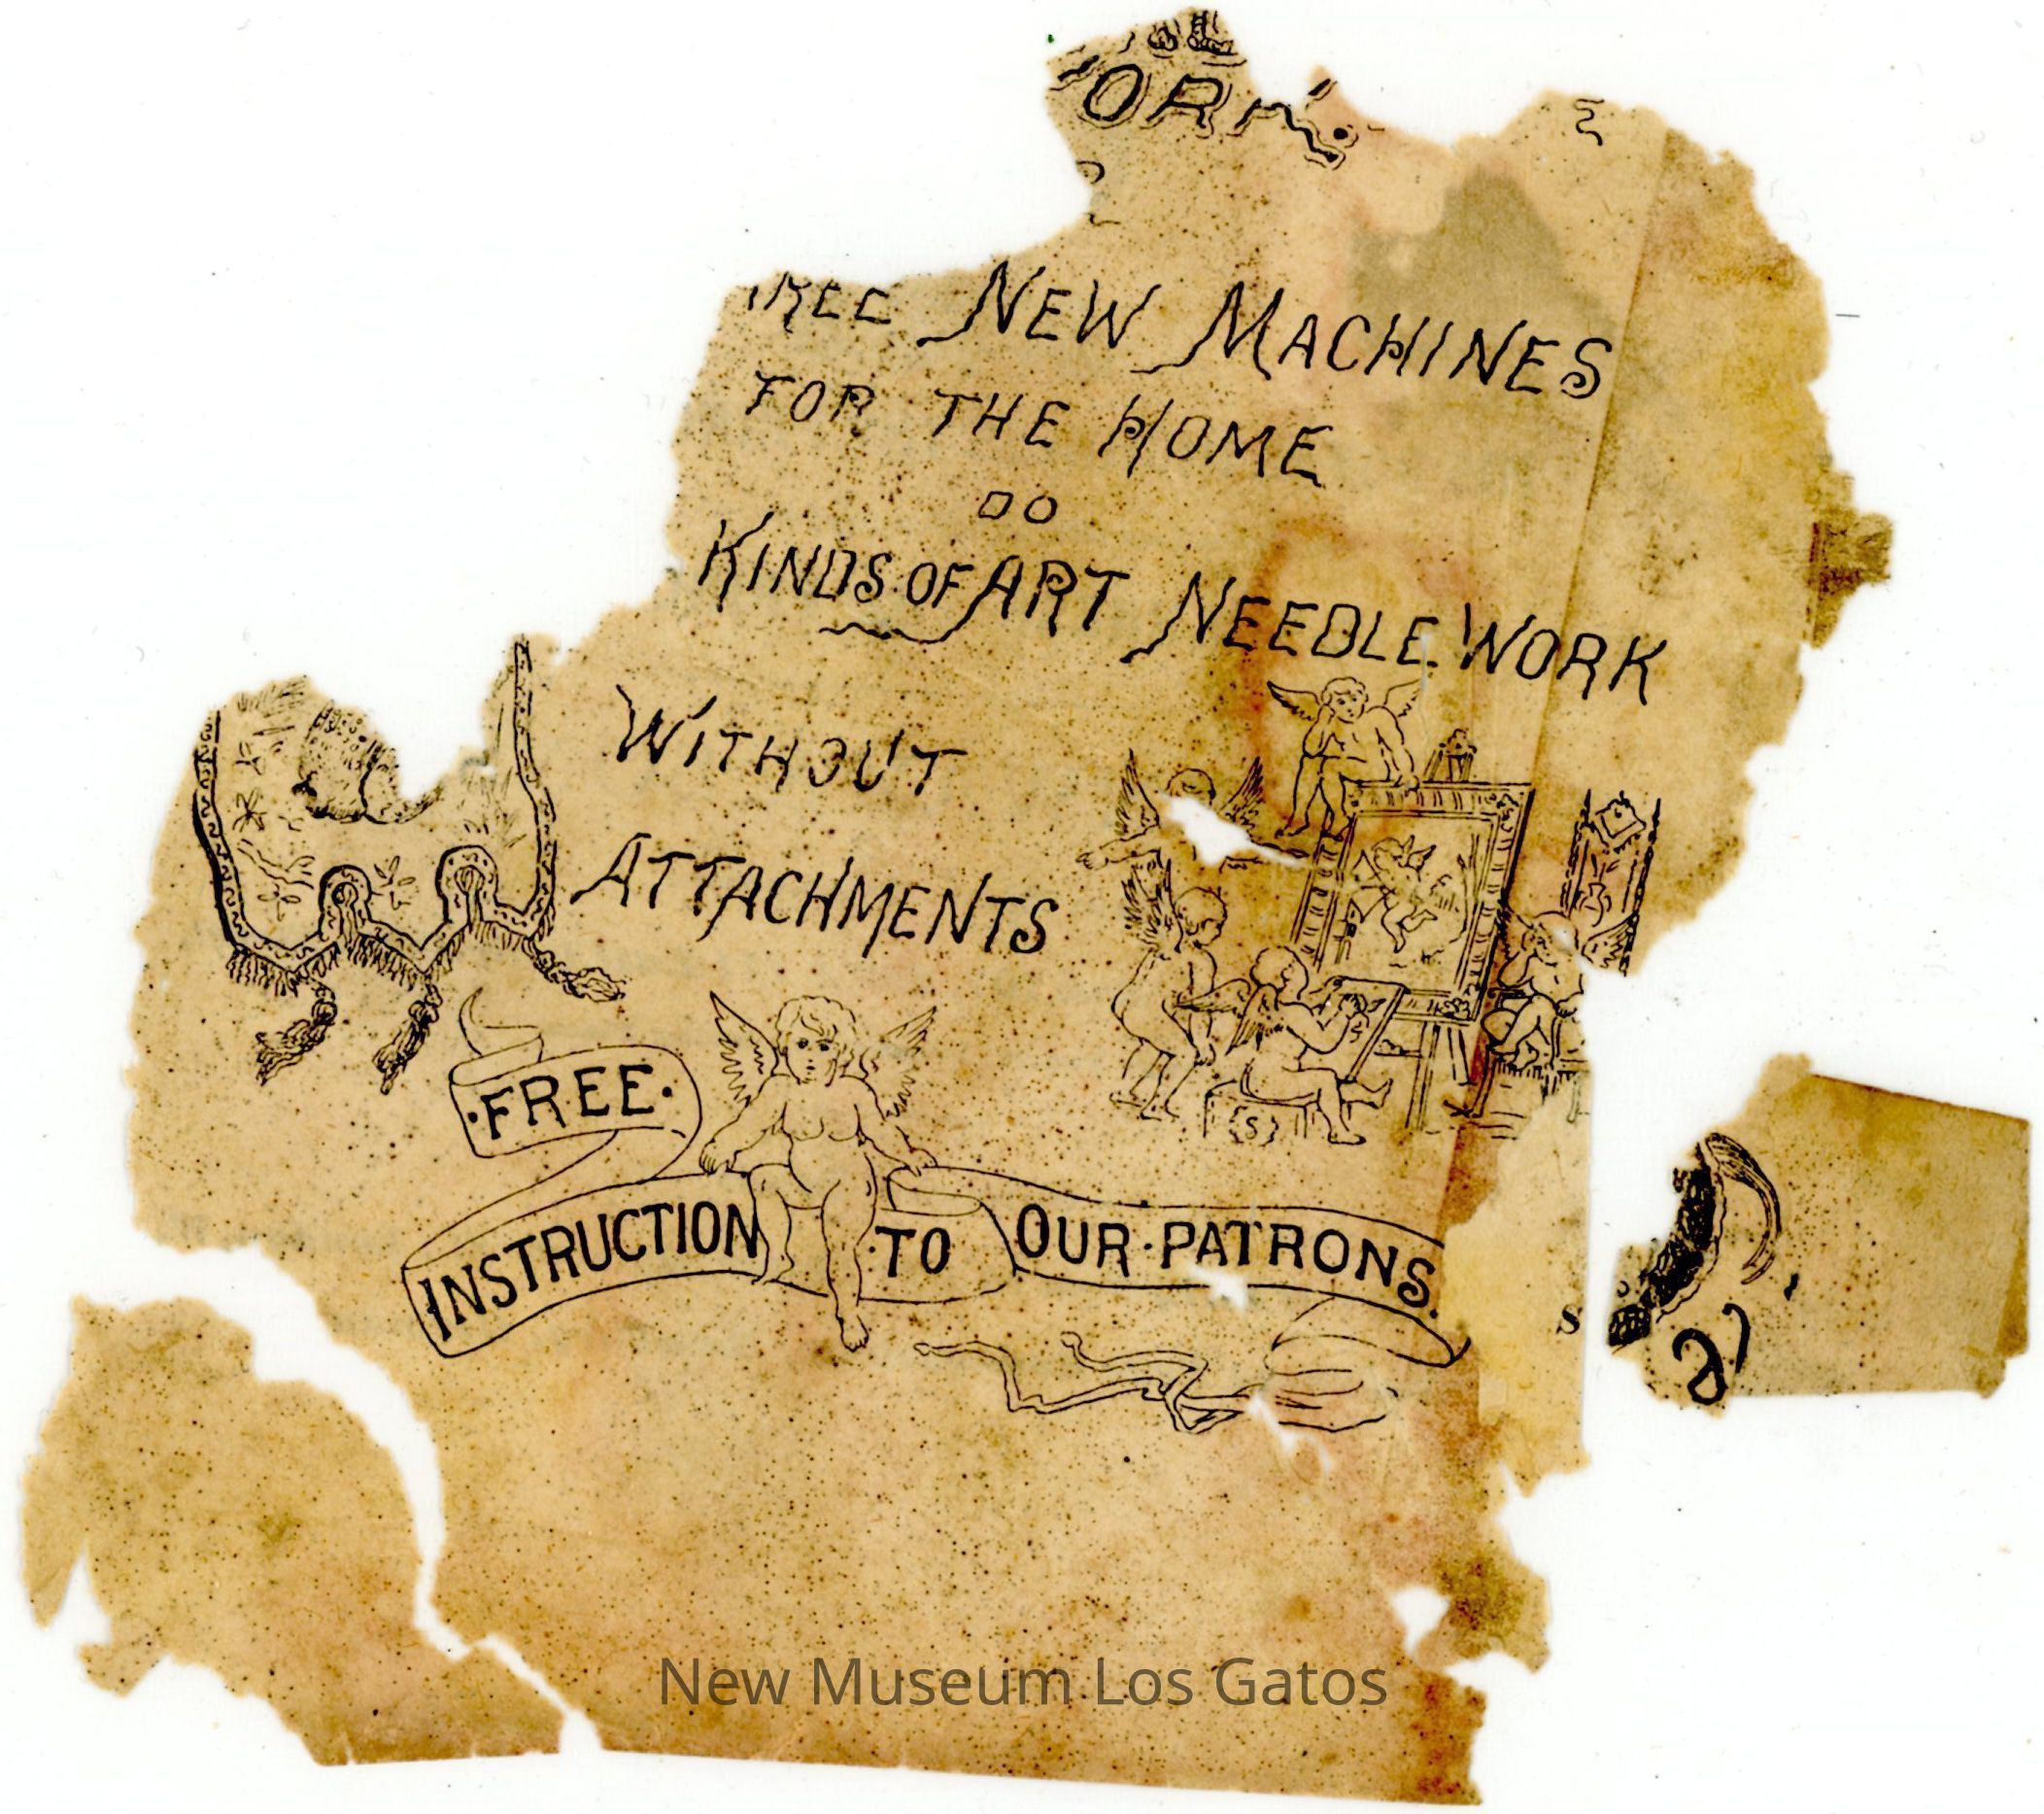 NEW MACHINES
FOR THE HOME
DO
KINDS OF ART NEEDLE WORK
WITHOUT
ATTACHMENTS
·FREE·
INSTRUCTION ·TO OUR·PATRONS.
New Museum Los Gatos